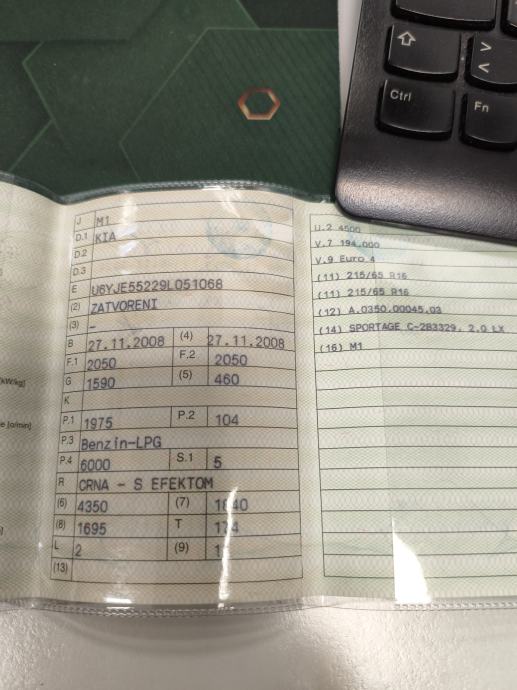 >
<
Ctrl
Fn
J M1
D.1 KIA
D.2
D.3
E U6YJE55229L051068
(2) ZATVORENI
(3) -
B 27.11.2008 (4) 27.11.2008
F.1 2050 F.2 2050
G 1590 (5) 460
K
P.1 1975 P.2 104
P.3 Benzin-LPG
P.4 6000 S.1 5
R CRNA - S EFEKTOM
(6) 4350 (7) 1840
(8) 1695 T 174
L 2 (9)
(13)
[kW/kg]
U.2 4500
V.7 194.000
V.9 Euro 4
(11) 215/65 R16
(11) 215/65 R16
(12) A.0350.00045.03
(14) SPORTAGE C-2B3329, 2.0 LX
(16) M1